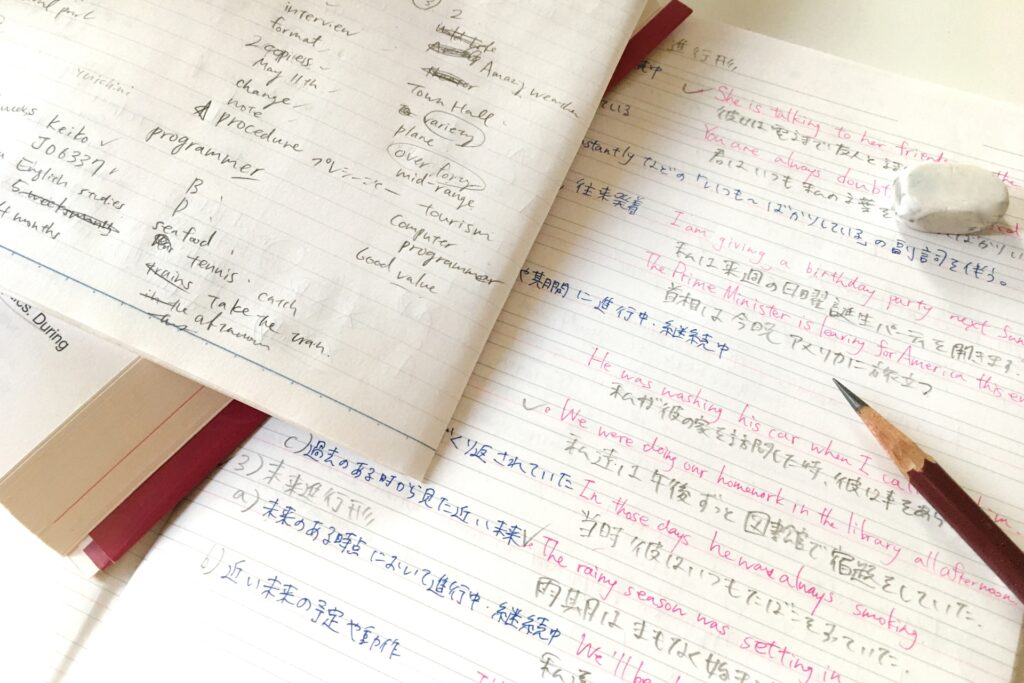 interview
format
2 copies
May 11th
change
note
procedure プレシージャー
programmer
Yuichini
weeks
Keiko
J06337
English studies
4 months
B
D
seafood
tennis. catch
trains Take the train.
in the afternoon
2
Amazy weather
Town Hall.
variety
plane
over forty
mid-range
tourism
computer
programmer
Good value
cs, During
進行形
She is talking to her friend
彼女は
You are always doubt
君はいつも私の言葉を
nstantly などの「いつも~ばかりしている」の副詞を伴う。
, 往来発着
I am giving a birthday party next Sun
私は来週の日曜誕生パーティを開きます.
The Prime Minister is leaving for America this ev
首相は今晩アメリカに旅立つ
や期間に進行中・継続中
He was washing his car when I call
私が彼の家を訪問した時,彼は車をあら
We were doing our homework in the library all afternoon
私達は午後ずっと図書館で宿題をしていた.
くり返されていた
In those days he was always smoking.
当時彼はいつもたばこをすっていた.
c)過去のある時から見た近い未来
The rainy season was setting in
雨期はまもなく始ま
3)未来進行形
a)未来のある時点において進行中・継続中
We'll be
私達
b)近い未来の予定や動作